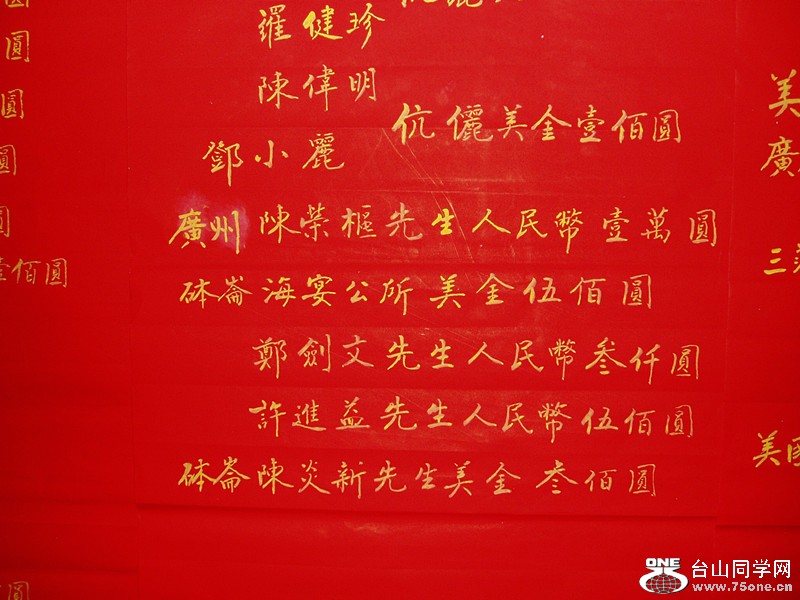 圓
圓
圓
圓
圓
壹佰圓
圓
羅健珍
陳偉明
鄧小麗
伉儷美金壹佰圓
廣州 陳榮樞先生人民幣壹萬圓
砵崙海宴公所美金伍佰圓
鄭劍文先生人民幣叁仟圓
許進益先生人民幣伍佰圓
砵崙陳炎新先生美金叁佰圓
美
廣
三
美國
ONE
台山同学网
www.75one.cn